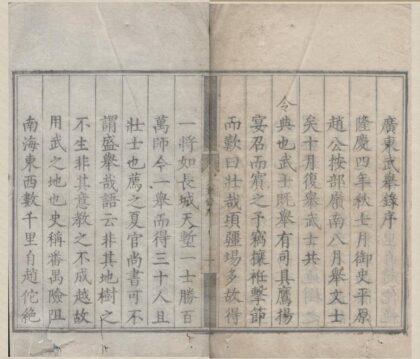 廣東武舉錄序
隆慶四年秋七月御史平原
趙公按部嶺南八月舉文士
矣十月復舉武士共
令典也武士既舉有司具鷹揚
宴召而賓之予竊攘袵擊節
而歎曰壯哉頃疆場多故得
一將如長城天塹一士勝百
萬師今一舉而得三十人且
壯士也薦之夏官尚書可不
謂盛舉哉語云非其地樹之
不生非其意教之不成越故
用武之地也史稱番禺險阻
南海東西數千里自趙佗絕